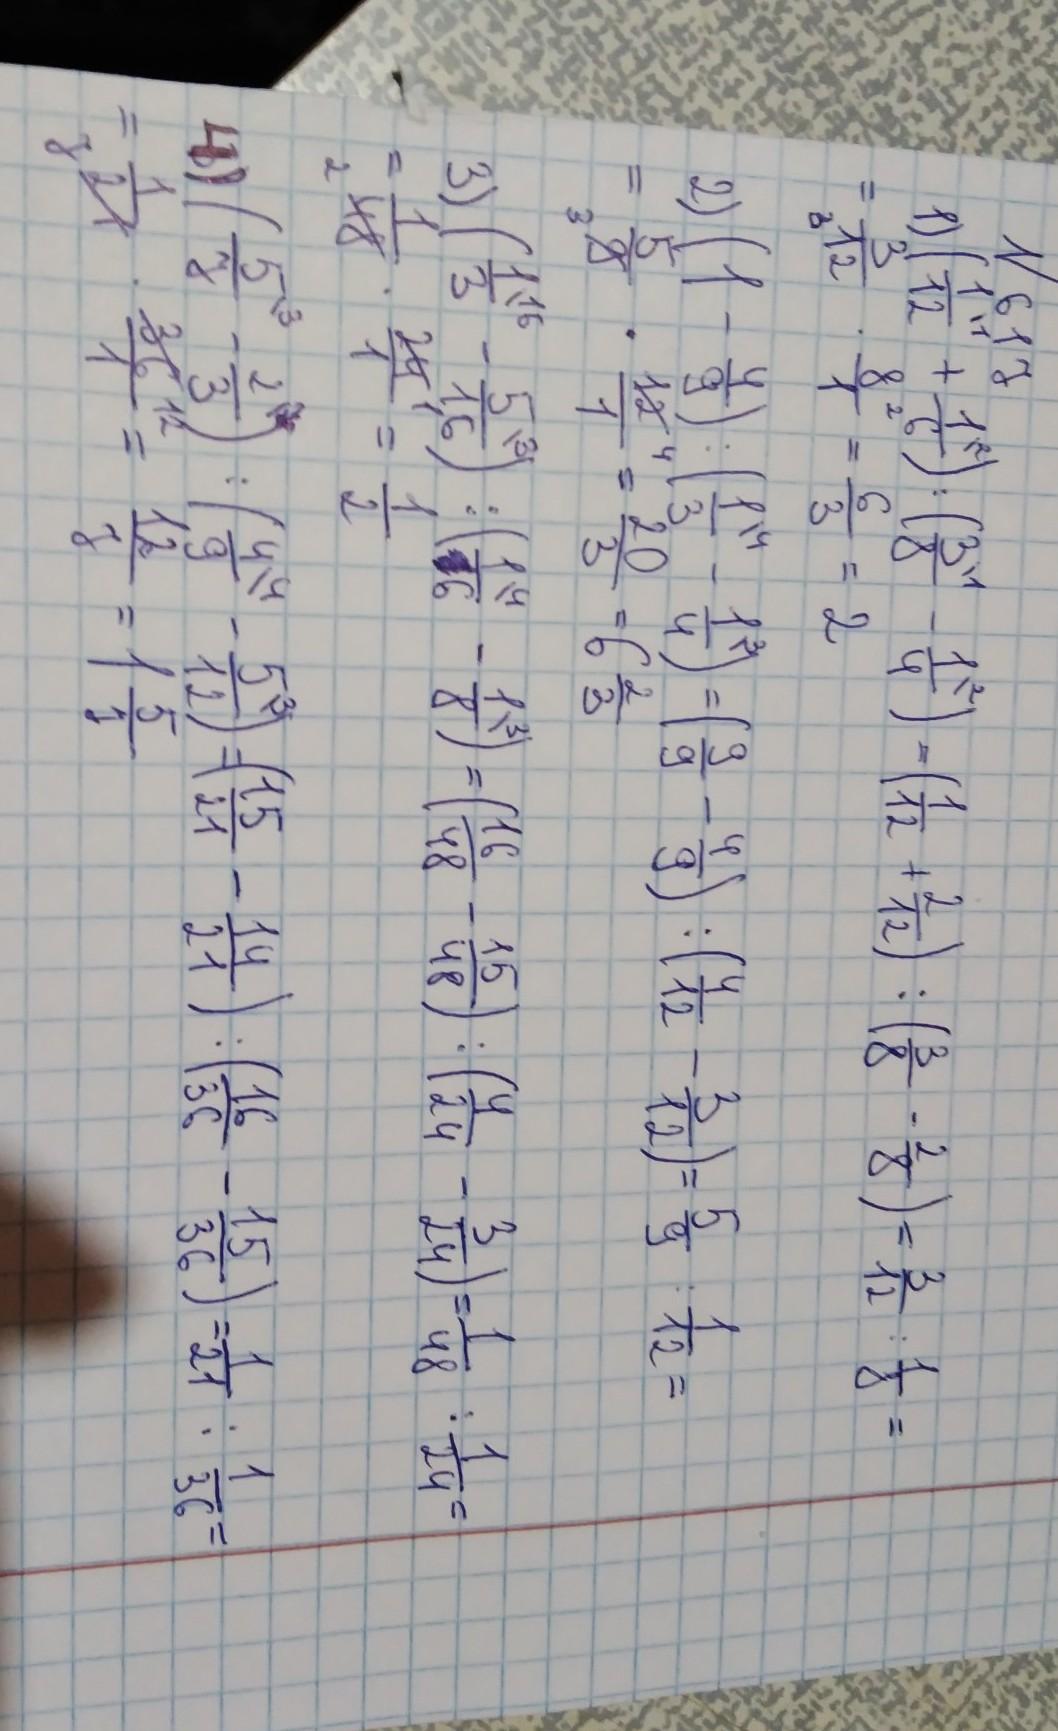 N 617
1) (1/12 + 1/6) : (3/8 - 1/4) = (1/12 + 2/12) : (3/8 - 2/8) = 3/12 : 1/8 =
= 3/12 · 8/1 = 6/3 = 2
2) (1 - 4/9) : (1/3 - 1/4) = (9/9 - 4/9) : (4/12 - 3/12) = 5/9 : 1/12 =
= 5/9 · 12/1 = 20/3 = 6 2/3
3) (1/3 - 5/16) : (1/6 - 1/8) = (16/48 - 15/48) : (4/24 - 3/24) = 1/48 : 1/24 =
= 1/48 · 24/1 = 1/2
4) (5/7 - 2/3) : (4/9 - 5/12) = (15/21 - 14/21) : (16/36 - 15/36) = 1/21 : 1/36 =
= 1/21 · 36/1 = 12/7 = 1 5/7